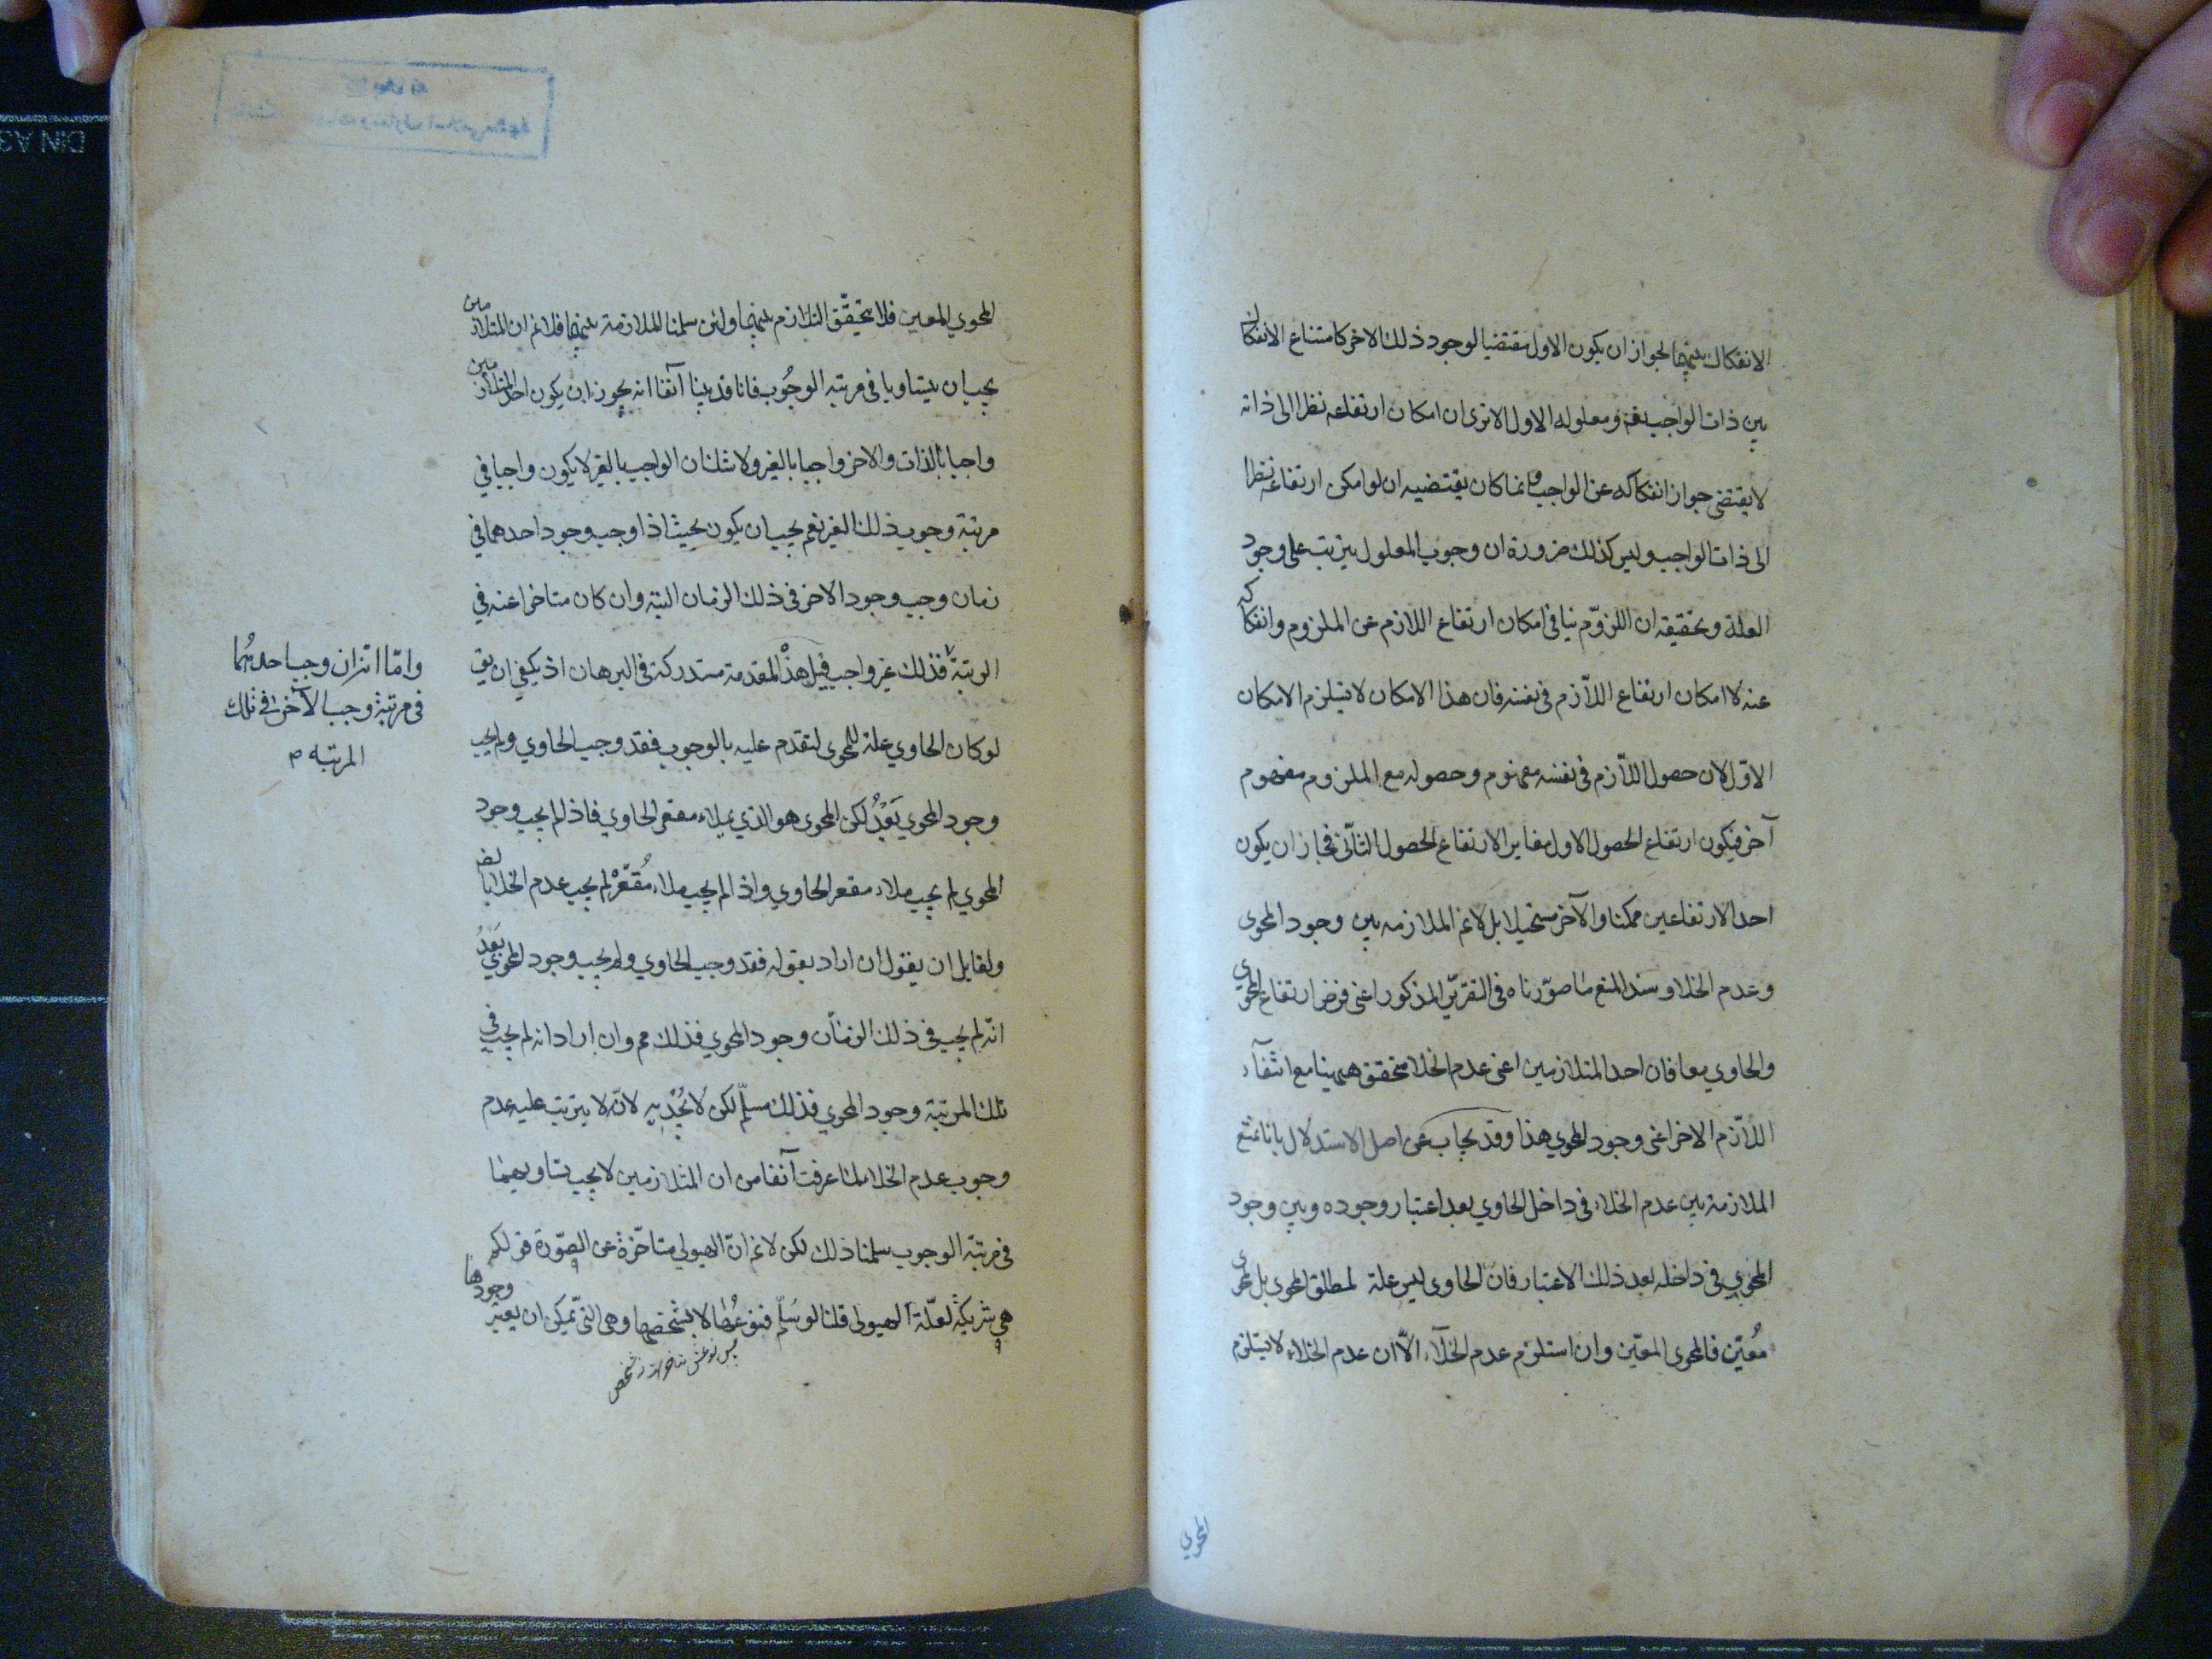 الانفكاك بينهما لجواز ان يكون الاول مقتضيا لوجود ذلك الاخر كامتناع الانفكاك
بين ذات الواجب تعم ومعلوله الاول الا ترى ان امكان ارتفاعه نظرا الى ذاته
لا يقتضى جواز انفكاكه عن الواجب وانما كان يقتضيه ان لو امكن ارتفاعه نظرا
الى ذات الواجب وليس كذلك ضرورة ان وجوب المعلول يترتب على وجود
العلة وتحقيقه ان اللزوم ينافى امكان ارتفاع اللازم عن الملزوم وانفكاكه
عنه لا امكان ارتفاع اللازم فى نفسه فان هذا الامكان لا يستلزم الامكان
الاول لان حصول اللازم فى نفسه مفهوم وحصوله مع الملزوم مفهوم
آخر فيكون ارتفاع الحصول الاول مغايرا لارتفاع الحصول الثانى فجاز ان يكون
احد الارتفاعين ممكنا والآخر مستحيلا بل لانم الملازمه بين وجود المحوى
وعدم الخلاء وسند المنع ما صورناه فى التقرير المذكور اعنى فرض ارتفاع المحوي
والحاوي معا فان احد المتلازمين اعنى عدم الخلاء متحقق ههنا مع انتفاء
اللازم الاخر اعنى وجود المحوي هذا وقد يجاب عن اصل الاستدلال بانا نمنع
الملازمة بين عدم الخلاء فى داخل الحاوي بعد اعتبار وجوده وبين وجود
المحوي فى داخله بعد ذلك الاعتبار فان الحاوى ليس علة لمطلق المحوى بل لمحوى
معين فالمحوى المعين وان استلزم عدم الخلاء الا ان عدم الخلاء لا يستلزم
المحوي
المحوي المعين فلا يتحقق التلازم بينهما ولئن سلمنا الملازمة بينهما فلانم ان المتلازمين
يجب ان يتساويا فى مرتبه الوجوب فانا قد بينا آنفا انه يجوز ان يكون احد المتلازمين
واجبا بالذات والاخر واجبا بالغير ولا شك ان الواجب بالغير لا يكون واجبا فى
مرتبة وجوب ذلك الغير نعم يجب ان يكون بحيث اذا وجب وجود احدهما فى
زمان وجب وجود الاخر فى ذلك الزمان البته وان كان متاخرا عنه فى
الرتبة فذلك غير واجب قيل هذه المقدمة مستدركة فى البرهان اذ يكفى ان يق
لو كان الحاوي علة للمحوى لتقدم عليه بالوجوب فقد وجب الحاوي ولم يجب
وجود المحوي بعد لكن المحوى هو الذي يملاء مقعر الحاوي فاذا لم يجب وجود
المحوي لم يجب ملاء مقعر الحاوي واذا لم يجب ملاء مقعره لم يجب عدم الخلاء
ولقايل ان يقول ان اراد بقوله فقد وجب الحاوي ولم يجب وجود المحوي بعد
انه لم يجب فى ذلك الزمان وجود المحوي فذلك مم وان اراد انه لم يجب فى
تلك المرتبة وجود المحوي فذلك مسلم لكن لا يجديه لانه لا يترتب عليه عدم
وجوب عدم الخلاء لما عرفت آنفا من ان المتلازمين لا يجب تساويهما
فى مرتبة الوجوب سلمنا ذلك لكن لانم ان الهيولى متاخرة عن الصورة قولكم
هى شريكة لعلة الهيولى قلنا لو سلم فنوعها لا بشخصها وهى التى يمكن ان يعتبر وجودها
واما انه ان وجب احدهما
فى مرتبة وجب الآخر فى تلك
المرتبه